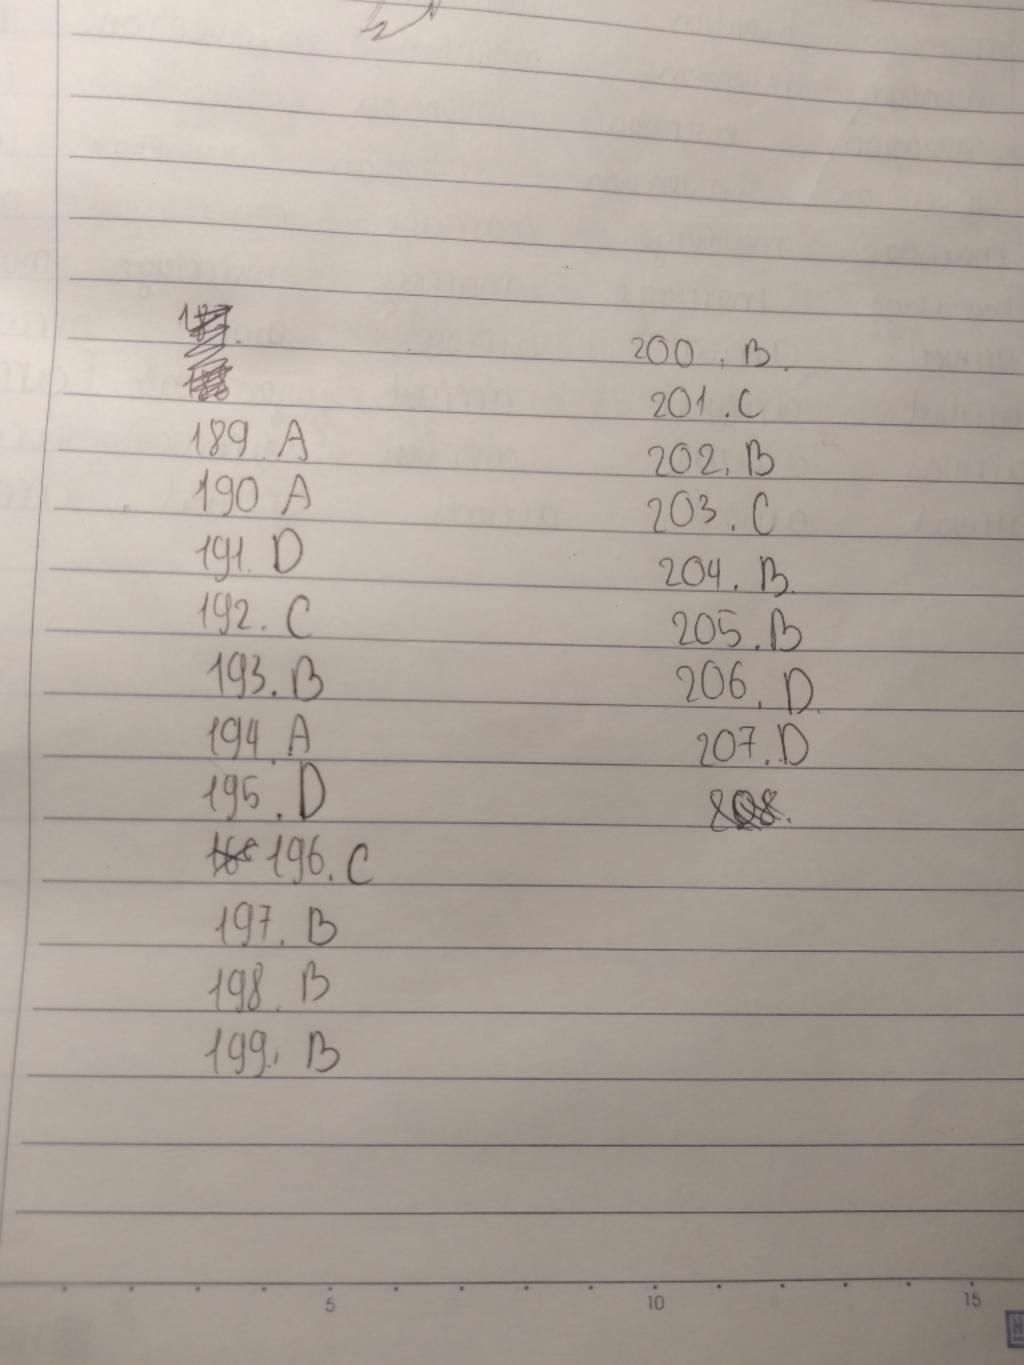 189. A
190 A
191. D
192. C
193. B
194. A
195. D
196. C
197. B
198. B
199. B
200. B.
201. C
202. B
203. C
204. B.
205. B
206. D.
207. D
5 10 15